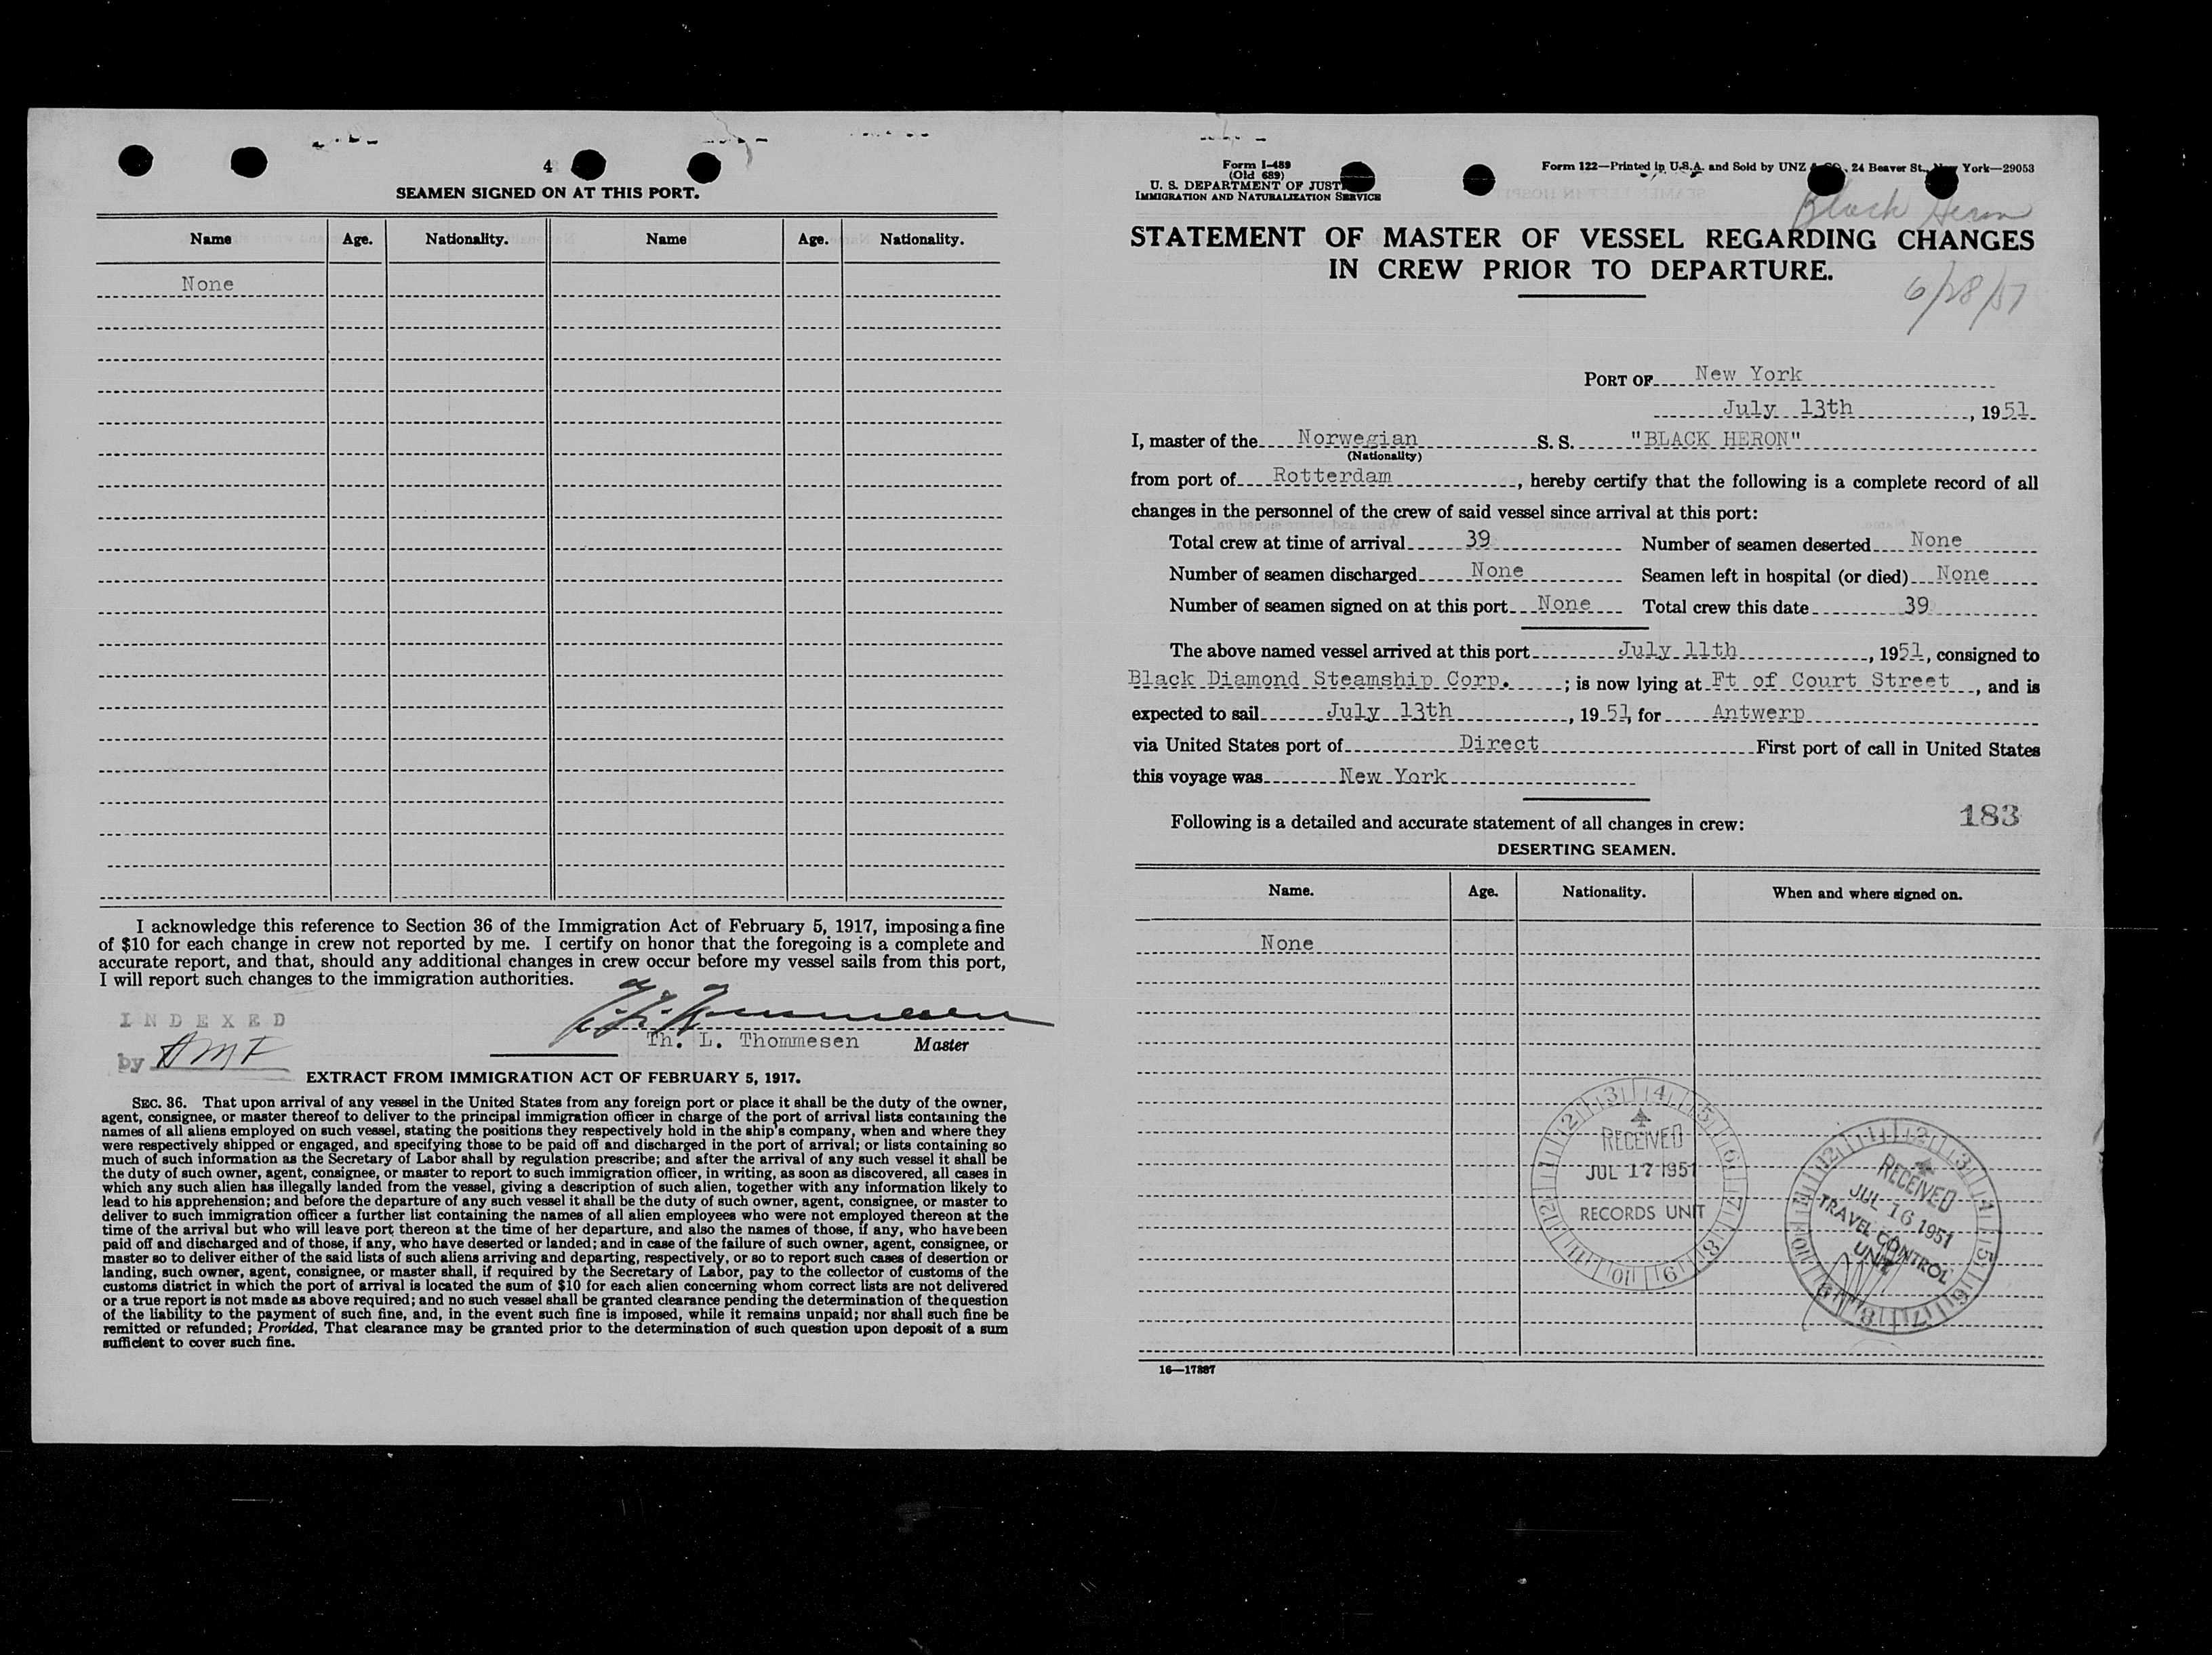 4
SEAMEN SIGNED ON AT THIS PORT.
Name Age. Nationality. Name Age. Nationality.
None
I acknowledge this reference to Section 36 of the Immigration Act of February 5, 1917, imposing a fine
of $10 for each change in crew not reported by me. I certify on honor that the foregoing is a complete and
accurate report, and that, should any additional changes in crew occur before my vessel sails from this port,
I will report such changes to the immigration authorities.
INDEXED
by AMF
Th. L. Thommesen Master
EXTRACT FROM IMMIGRATION ACT OF FEBRUARY 5, 1917.
SEC. 36. That upon arrival of any vessel in the United States from any foreign port or place it shall be the duty of the owner,
agent, consignee, or master thereof to deliver to the principal immigration officer in charge of the port of arrival lists containing the
names of all aliens employed on such vessel, stating the positions they respectively hold in the ship's company, when and where they
were respectively shipped or engaged, and specifying those to be paid off and discharged in the port of arrival; or lists containing so
much of such information as the Secretary of Labor shall by regulation prescribe; and after the arrival of any such vessel it shall be
the duty of such owner, agent, consignee, or master to report to such immigration officer, in writing, as soon as discovered, all cases in
which any such alien has illegally landed from the vessel, giving a description of such alien, together with any information likely to
lead to his apprehension; and before the departure of any such vessel it shall be the duty of such owner, agent, consignee, or master to
deliver to such immigration officer a further list containing the names of all alien employees who were not employed thereon at the
time of the arrival but who will leave port thereon at the time of her departure, and also the names of those, if any, who have been
paid off and discharged and of those, if any, who have deserted or landed; and in case of the failure of such owner, agent, consignee, or
master so to deliver either of the said lists of such aliens arriving and departing, respectively, or so to report such cases of desertion or
landing, such owner, agent, consignee, or master shall, if required by the Secretary of Labor, pay to the collector of customs of the
customs district in which the port of arrival is located the sum of $10 for each alien concerning whom correct lists are not delivered
or a true report is not made as above required; and no such vessel shall be granted clearance pending the determination of the question
of the liability to the payment of such fine, and, in the event such fine is imposed, while it remains unpaid; nor shall such fine be
remitted or refunded; Provided, That clearance may be granted prior to the determination of such question upon deposit of a sum
sufficient to cover such fine.
Form I-489
(Old 689)
U. S. DEPARTMENT OF JUST
IMMIGRATION AND NATURALIZATION SERVICE
Form 122—Printed in U.S.A. and Sold by UNZ & CO., 24 Beaver St., New York—29053
Black Heron
STATEMENT OF MASTER OF VESSEL REGARDING CHANGES
IN CREW PRIOR TO DEPARTURE.
6/28/51
PORT OF New York
July 13th, 1951
I, master of the Norwegian S. S. "BLACK HERON"
(Nationality)
from port of Rotterdam, hereby certify that the following is a complete record of all
changes in the personnel of the crew of said vessel since arrival at this port:
Total crew at time of arrival 39 Number of seamen deserted None
Number of seamen discharged None Seamen left in hospital (or died) None
Number of seamen signed on at this port None Total crew this date 39
The above named vessel arrived at this port July 11th, 1951, consigned to
Black Diamond Steamship Corp.; is now lying at Ft of Court Street, and is
expected to sail July 13th, 1951, for Antwerp
via United States port of Direct First port of call in United States
this voyage was New York
183
Following is a detailed and accurate statement of all changes in crew:
DESERTING SEAMEN.
Name. Age. Nationality. When and where signed on.
None
1 2 3 4 5 6 7 8 9 10 11 12
RECEIVED
JUL 17 1951
RECORDS UNIT
12 1 2 3 4 5 6 7 8 9 10 11
RECEIVED
JUL 16 1951
TRAVEL CONTROL
UNIT
16—17887